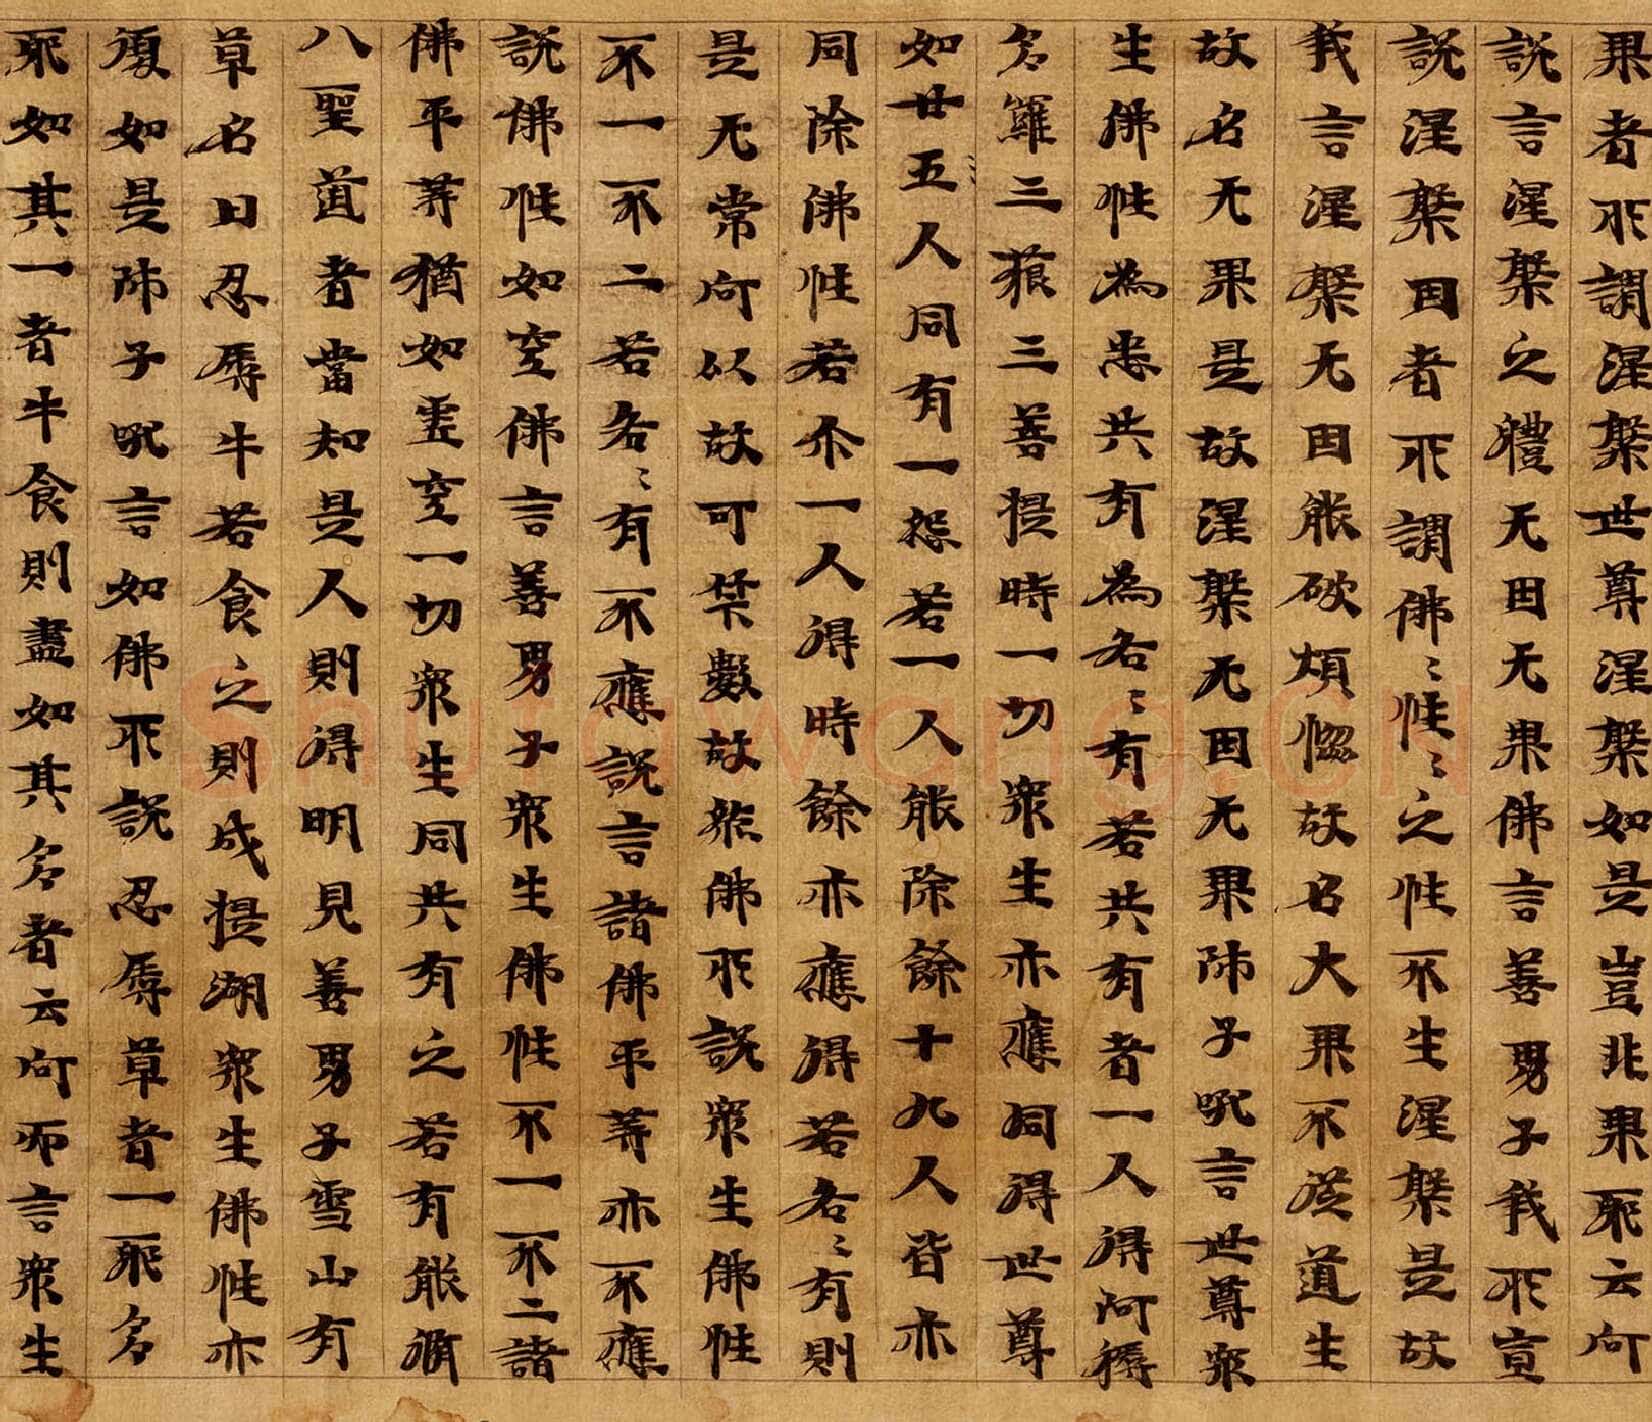 果者所謂涅槃世尊涅槃如是豈非果耶云何
說言涅槃之體无因无果佛言善男子我所宣
說涅槃因者所謂佛〻性〻之性不生涅槃是故
我言涅槃无因能破煩惱故名大果不從道生
故名无果是故涅槃无因无果師子吼言世尊眾
生佛性為悉共有為各〻有若共有者一人得阿耨
多羅三藐三菩提時一切眾生亦應同得世尊
如廿五人同有一怨若一人能除餘十九人皆亦
同除佛性若尒一人得時餘亦應得若各〻有則
是无常何以故可筭數故然佛所說眾生佛性
不一不二若各〻有不應說言諸佛平等亦不應
說佛性如空佛言善男子眾生佛性不一不二諸
佛平等猶如虛空一切眾生同共有之若有能脩
八聖道者當知是人則得明見善男子雪山有
草名曰忍辱牛若食之則成提湖眾生佛性亦
復如是師子吼言如佛所說忍辱草者一耶多
耶如其一者牛食則盡如其多者云何而言眾生
Shufawang.CN